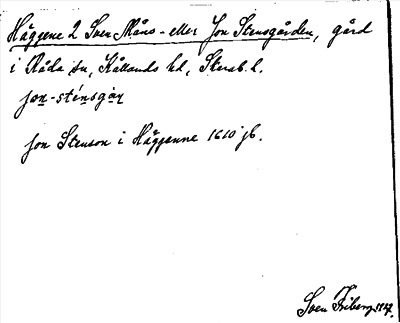 Häggene 2 Sven Måns- eller Jon Stensgården, gård
i Råda sn, Kållands hd, Skarab. l.
jon-sténsgà̱ṉ
Jon Stenson i Häggenne 1610 jb.
Sven Friberg 1927.